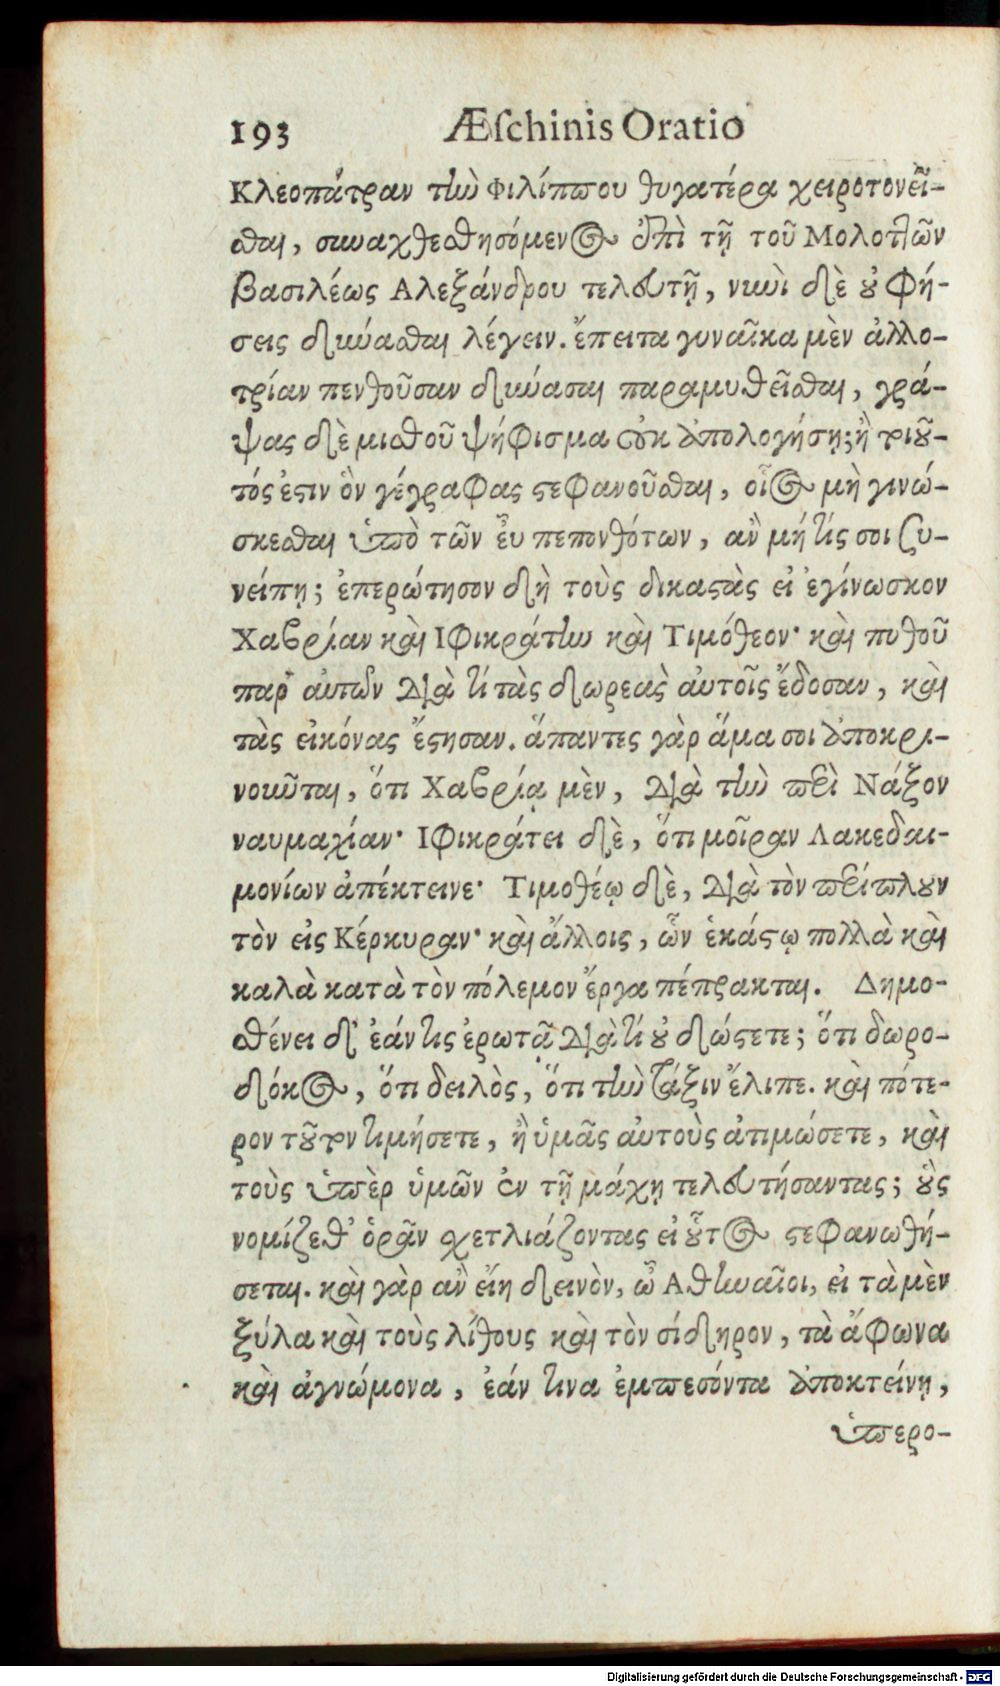 193 Æſchinis Oratio
Κλεοπάτραν τὴν Φιλίππου θυγατέρα χειροτονεῖ-
σθαι, συναχθεσθησόμενος ἐπὶ τῇ τοῦ Μολοττῶν
βασιλέως Αλεξάνδρου τελευτῇ, νυνὶ δὲ οὐ φή-
σεις δύνασθαι λέγειν. ἔπειτα γυναῖκα μὲν ἀλλο-
τρίαν πενθοῦσαν δύνασαι παραμυθεῖσθαι, γρά-
ψας δὲ μισθοῦ ψήφισμα οὐκ ἀπολογήσῃ; ἢ τοιοῦ-
τός ἐστιν ὃν γέγραφας στεφανοῦσθαι, οἷος μὴ γινώ-
σκεσθαι ὑπὸ τῶν εὖ πεπονθότων, ἂν μή τίς σοι συ-
νείπῃ; ἐπερώτησον δὴ τοὺς δικαστὰς εἰ ἐγίνωσκον
Χαβρίαν καὶ Ιφικράτην καὶ Τιμόθεον· καὶ πυθοῦ
παρ' αὐτῶν διὰ τί τὰς δωρεὰς αὐτοῖς ἔδοσαν, καὶ
τὰς εἰκόνας ἔστησαν. ἅπαντες γὰρ ἅμα σοι ἀποκρι-
νοῦνται, ὅτι Χαβρίᾳ μὲν, διὰ τὴν περὶ Νάξον
ναυμαχίαν· Ιφικράτει δὲ, ὅτι μοῖραν Λακεδαι-
μονίων ἀπέκτεινε· Τιμοθέῳ δὲ, διὰ τὸν περίπλουν
τὸν εἰς Κέρκυραν· καὶ ἄλλοις, ὧν ἑκάστῳ πολλὰ καὶ
καλὰ κατὰ τὸν πόλεμον ἔργα πέπρακται. Δημο-
σθένει δ' ἐάν τις ἐρωτᾷ διὰ τί οὐ δώσετε; ὅτι δωρο-
δόκος, ὅτι δειλὸς, ὅτι τὴν τάξιν ἔλιπε. καὶ πότε-
ρον τοῦτον τιμήσετε, ἢ ὑμᾶς αὐτοὺς ἀτιμώσετε, καὶ
τοὺς ὑπὲρ ὑμῶν ἐν τῇ μάχῃ τελευτήσαντας; οὓς
νομίζεθ' ὁρᾶν σχετλιάζοντας εἰ οὗτος στεφανωθή-
σεται. καὶ γὰρ ἂν εἴη δεινὸν, ὦ Αθηναῖοι, εἰ τὰ μὲν
ξύλα καὶ τοὺς λίθους καὶ τὸν σίδηρον, τὰ ἄφωνα
καὶ ἀγνώμονα, ἐάν τινα ἐμπεσόντα ἀποκτείνῃ,
ὑπερο-
Digitalisierung gefördert durch die Deutsche Forschungsgemeinschaft - DFG